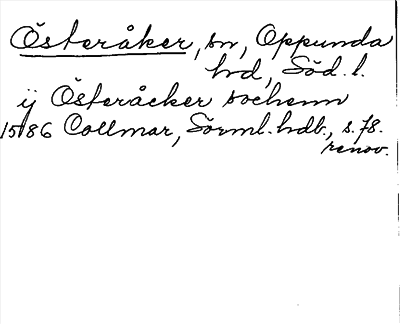 Österåker, sn, Oppunda
hd, Söd. l.
ij Österåcker sochenn
1586 Collmar, Sörml. hdb., s. 78.
renov.